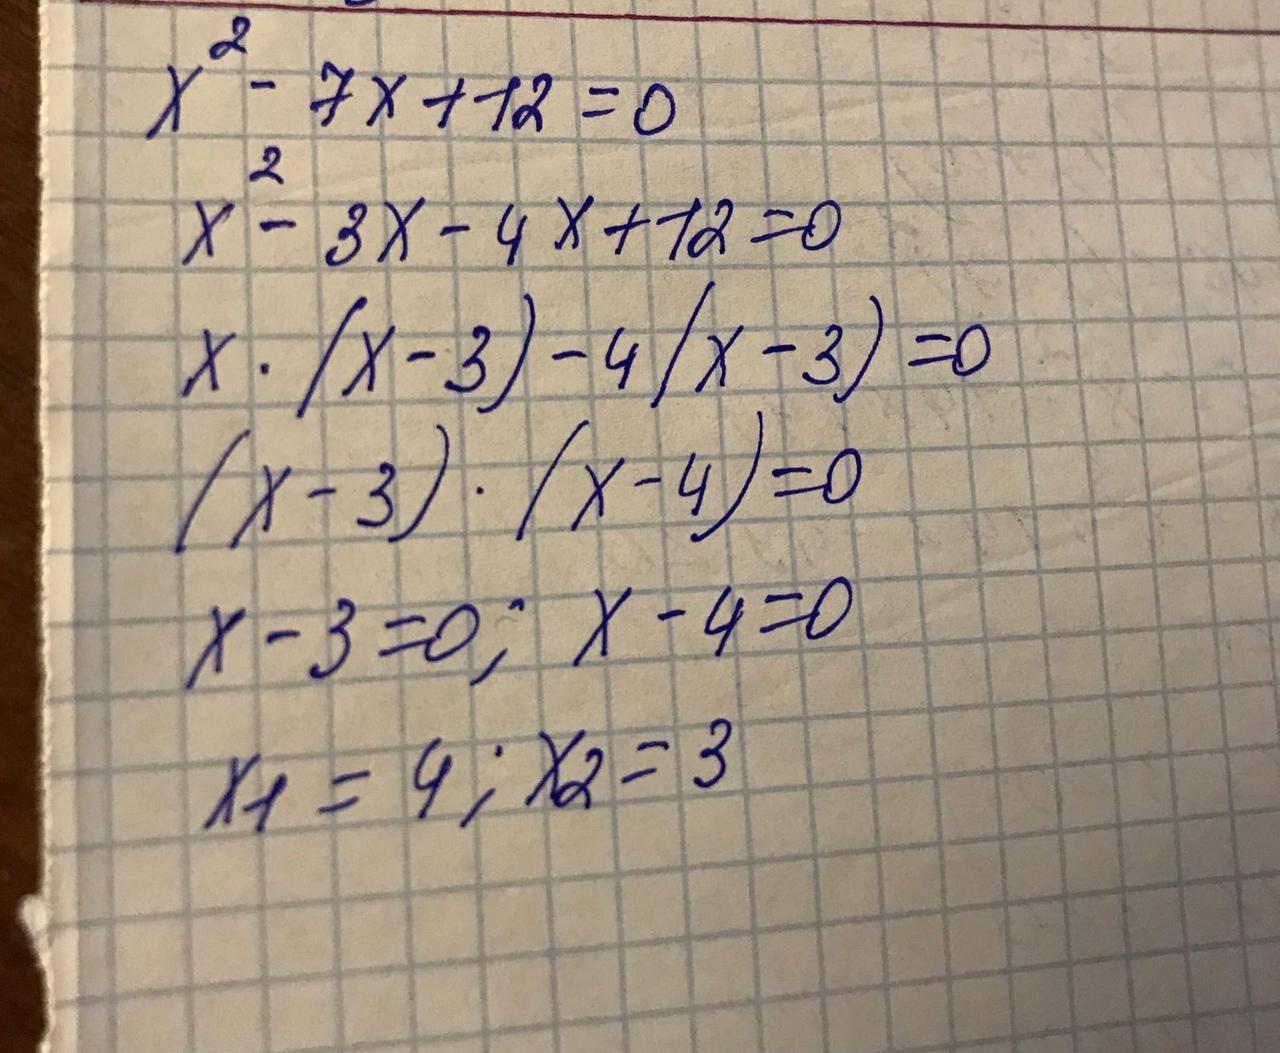 x² - 7x + 12 = 0
x² - 3x - 4x + 12 = 0
x · (x - 3) - 4(x - 3) = 0
(x - 3) · (x - 4) = 0
x - 3 = 0; x - 4 = 0
x1 = 4; x2 = 3